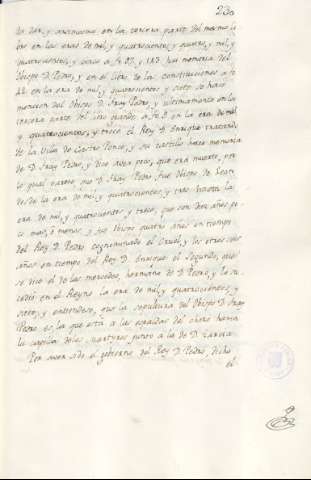 230
en la tercera parte del mismo li
bro en las eras de mil, y quatrocientos, y quatro, y mil, y
quatrocientos, y cinco a fo. 83. y 183. hace memoria del
Obispo D. Pedro, y en el libro de las constituciones a fo.
22. en la era de mil, y quatrocientos, y siete se hace
mencion del Obispo D. Fray Pedro, y ultimamente en la
tercera parte del libro grande a fo. 8. en la era de mil
y quatrocientos, y trece el Rey D. Enrique tratando
de la Villa de Castro Ponce, y su castillo hace memoria
de D. Fray Pedro, y dice aver
lo qual parece que D. Fray Pedro fue Obispo de Leon,
desde la era de mil, y quatrocientos, y tres hasta la
era de mil, y quatrocientos y trece, que son diez años po
co mas, o menos, y fue Obispo quatro años en tiempo
del Rey D. Pedro cognominado el Cruel, y los otros seis
años en tiempo del Rey D. Enrique el Segundo, que
se dice el de las mercedes, hermano de D. Pedro, y le su
cedió en el Reyno la era de mil, y quatrocientos, y
siete, y entendese, que la sepultura del Obispo D. Fray
Pedro es la que está a las espaldas del choro hacia
la capilla de los Martyres junto a la de D.
Por aver sido el gobierno del Rey D. Pedro, dicho
el